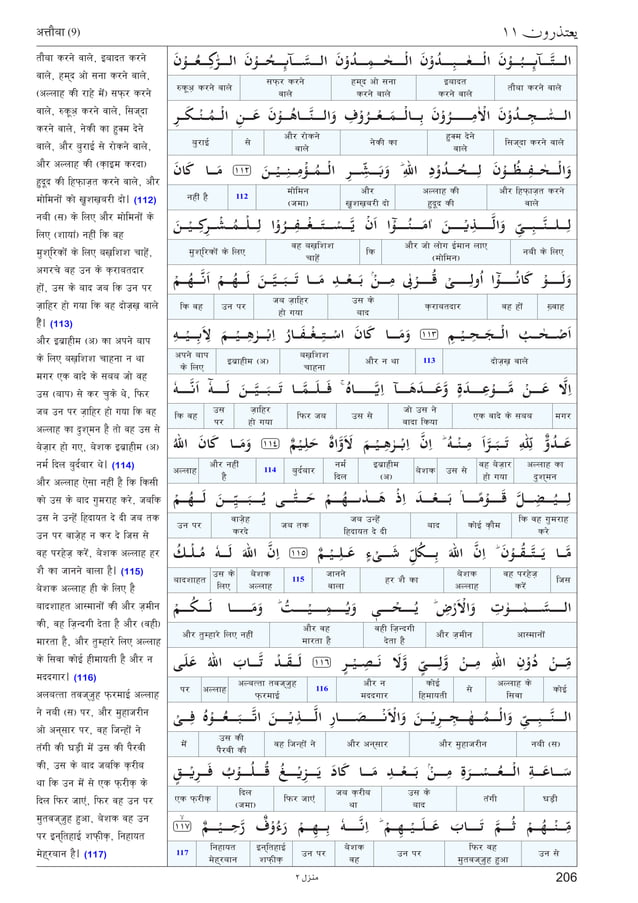 अत्तौबा (9)
يعتذرون ١١
तौबा करने वाले, इबादत करने
वाले, हम्द ओ सना करने वाले,
(अल्लाह की राह में) सफ़र करने
वाले, रुकूअ़ करने वाले, सिज्दा
करने वाले, नेकी का हुक्म देने
वाले, और बुराई से रोकने वाले,
और अल्लाह की (क़ाइम करदा)
हुदूद की हिफ़ाज़त करने वाले, और
मोमिनों को खुशख़बरी दो। (112)
नबी (स) के लिए और मोमिनों के
लिए (शायां) नहीं कि वह
मुश्रिकों के लिए बख़्शिश चाहें,
अगरचे वह उन के क़राबतदार
हों, उस के बाद जब कि उन पर
ज़ाहिर हो गया कि वह दोज़ख़ वाले
हैं। (113)
और इब्राहीम (अ) का अपने बाप
के लिए बख़्शिश चाहना न था
मगर एक वादे के सबब जो वह
उस (बाप) से कर चुके थे, फिर
जब उन पर ज़ाहिर हो गया कि वह
अल्लाह का दुश्मन है तो वह उस से
बेज़ार हो गए, बेशक इब्राहीम (अ)
नर्म दिल बुर्दबार थे। (114)
और अल्लाह ऐसा नहीं है कि किसी
को उस के बाद गुमराह करे, जबकि
उस ने उन्हें हिदायत दे दी जब तक
उन पर वाज़ेह न कर दे जिस से
वह परहेज़ करें, बेशक अल्लाह हर
शै का जानने वाला है। (115)
बेशक अल्लाह ही के लिए है
बादशाहत आस्मानों की और ज़मीन
की, वह ज़िन्दगी देता है और (वही)
मारता है, और तुम्हारे लिए अल्लाह
के सिवा कोई हीमायती है और न
मददगार। (116)
अलबत्ता तवज्जुह फरमाई अल्लाह
ने नबी (स) पर, और मुहाजरीन
ओ अन्सार पर, वह जिन्हों ने
तंगी की घड़ी में उस की पैरवी
की, उस के बाद जबकि क़रीब
था कि उन में से एक फ़रीक़ के
दिल फिर जाएं, फिर वह उन पर
मुतवज्जुह हुआ, बेशक वह उन
पर इन्तिहाई शफ़ीक़, निहायत
मेह्रबान है। (117)
التَّآىِٕبُوْنَ الْعٰبِدُوْنَ الْحٰمِدُوْنَ السَّآىِٕحُوْنَ الرّٰكِعُوْنَ
रुकूअ़ करने वाले | सफ़र करने वाले | हम्द ओ सना करने वाले | इबादत करने वाले | तौबा करने वाले
السّٰجِدُوْنَ الْاٰمِرُوْنَ بِالْمَعْرُوْفِ وَالنَّاهُوْنَ عَنِ الْمُنْكَرِ
बुराई | से | और रोकने वाले | नेकी का | हुक्म देने वाले | सिज्दा करने वाले
وَالْحٰفِظُوْنَ لِحُدُوْدِ اللّٰهِ ؕ وَبَشِّرِ الْمُؤْمِنِيْنَ ﴿١١٢﴾ مَا كَانَ
नहीं है | 112 | मोमिन (जमा) | और खुशख़बरी दो | अल्लाह की हुदूद की | और हिफ़ाज़त करने वाले
لِلنَّبِيِّ وَالَّذِيْنَ اٰمَنُوْٓا اَنْ يَّسْتَغْفِرُوْا لِلْمُشْرِكِيْنَ
मुश्रिकों के लिए | वह बख़्शिश चाहें | कि | और जो लोग ईमान लाए (मोमिन) | नबी के लिए
وَلَوْ كَانُوْٓا اُولِيْ قُرْبٰى مِنْۢ بَعْدِ مَا تَبَيَّنَ لَهُمْ اَنَّهُمْ
कि वह | उन पर | जब ज़ाहिर हो गया | उस के बाद | क़राबतदार | वह हों | ख़्वाह
اَصْحٰبُ الْجَحِيْمِ ﴿١١٣﴾ وَمَا كَانَ اسْتِغْفَارُ اِبْرٰهِيْمَ لِاَبِيْهِ
अपने बाप के लिए | इब्राहीम (अ) | बख़्शिश चाहना | और न था | 113 | दोज़ख़ वाले
اِلَّا عَنْ مَّوْعِدَةٍ وَّعَدَهَآ اِيَّاهُ ۚ فَلَمَّا تَبَيَّنَ لَهٗٓ اَنَّهٗ
कि वह | उस पर | ज़ाहिर हो गया | फिर जब | उस से | जो उस ने वादा किया | एक वादे के सबब | मगर
عَدُوٌّ لِّلّٰهِ تَبَرَّاَ مِنْهُ ؕ اِنَّ اِبْرٰهِيْمَ لَاَوَّاهٌ حَلِيْمٌ ﴿١١٤﴾ وَمَا كَانَ اللّٰهُ
अल्लाह | और नहीं है | 114 | बुर्दबार | नर्म दिल | इब्राहीम (अ) | बेशक | उस से | वह बेज़ार हो गया | अल्लाह का दुश्मन
لِيُضِلَّ قَوْمًۢا بَعْدَ اِذْ هَدٰىهُمْ حَتّٰى يُبَيِّنَ لَهُمْ
उन पर | वाज़ेह करदे | जब तक | जब उन्हें हिदायत दे दी | बाद | कोई क़ौम | कि वह गुमराह करे
مَّا يَتَّقُوْنَ ؕ اِنَّ اللّٰهَ بِكُلِّ شَيْءٍ عَلِيْمٌ ﴿١١٥﴾ اِنَّ اللّٰهَ لَهٗ مُلْكُ
बादशाहत | उस के लिए | बेशक अल्लाह | 115 | जानने वाला | हर शै का | बेशक अल्लाह | वह परहेज़ करें | जिस
السَّمٰوٰتِ وَالْاَرْضِ ؕ يُحْيٖ وَيُمِيْتُ ؕ وَمَا لَكُمْ
और तुम्हारे लिए नहीं | और वह मारता है | वही ज़िन्दगी देता है | और ज़मीन | आस्मानों
مِّنْ دُوْنِ اللّٰهِ مِنْ وَّلِيٍّ وَّلَا نَصِيْرٍ ﴿١١٦﴾ لَقَدْ تَّابَ اللّٰهُ عَلَى
पर | अल्लाह | अल्बत्ता तवज्जुह फ़रमाई | 116 | और न मददगार | कोई हिमायती | से | अल्लाह के सिवा | कोई
النَّبِيِّ وَالْمُهٰجِرِيْنَ وَالْاَنْصَارِ الَّذِيْنَ اتَّبَعُوْهُ فِيْ
में | उस की पैरवी की | वह जिन्हों ने | और अन्सार | और मुहाजरीन | नबी (स)
سَاعَةِ الْعُسْرَةِ مِنْۢ بَعْدِ مَا كَادَ يَزِيْغُ قُلُوْبُ فَرِيْقٍ
एक फ़रीक़ | दिल (जमा) | फिर जाएं | जब क़रीब था | उस के बाद | तंगी | घड़ी
مِّنْهُمْ ثُمَّ تَابَ عَلَيْهِمْ ؕ اِنَّهٗ بِهِمْ رَءُوْفٌ رَّحِيْمٌ ﴿١١٧﴾
117 | निहायत मेह्रबान | इन्तिहाई शफ़ीक़ | उन पर | बेशक वह | उन पर | फिर वह मुतवज्जुह हुआ | उन से
منزل ٢
206